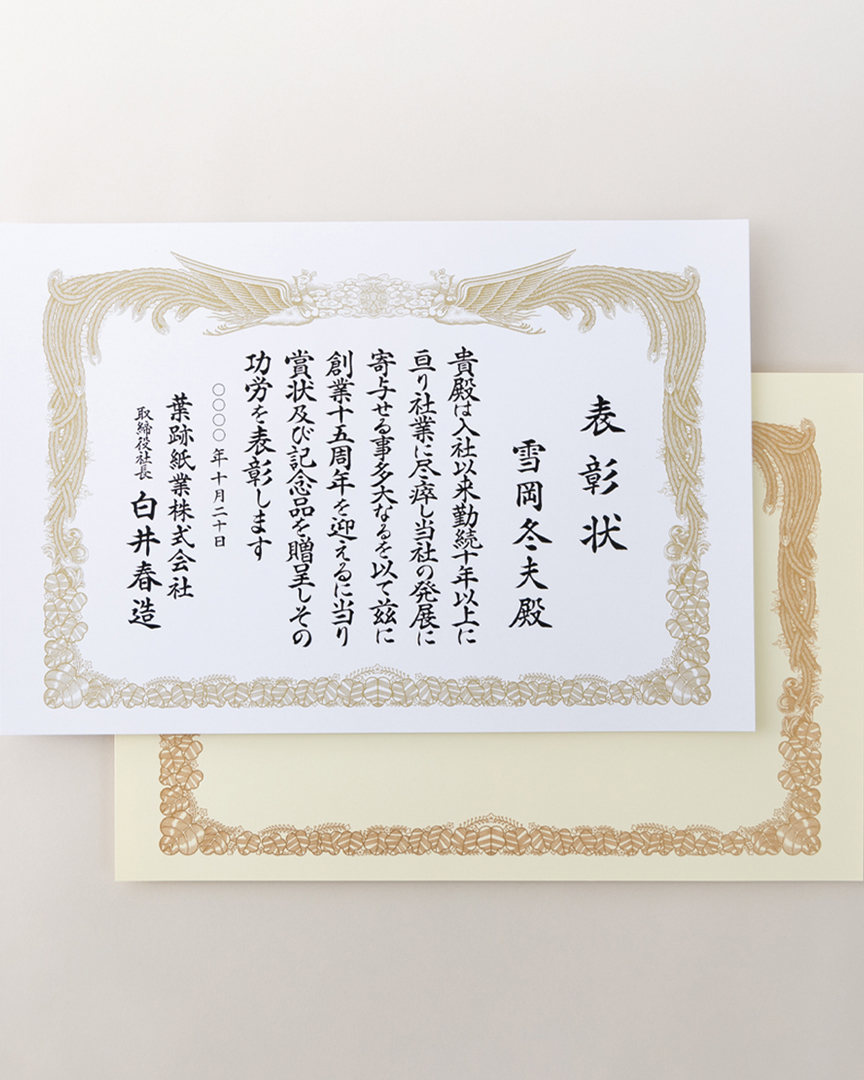 表彰状
雪岡冬夫殿
貴殿は入社以来勤続十年以上に
亘り社業に尽瘁し当社の発展に
寄与せる事多大なるを以て茲に
創業十五周年を迎えるに当り
賞状及び記念品を贈呈しその
功労を表彰します
〇〇〇〇年十月二十日
葉跡紙業株式会社
取締役社長 白井春造